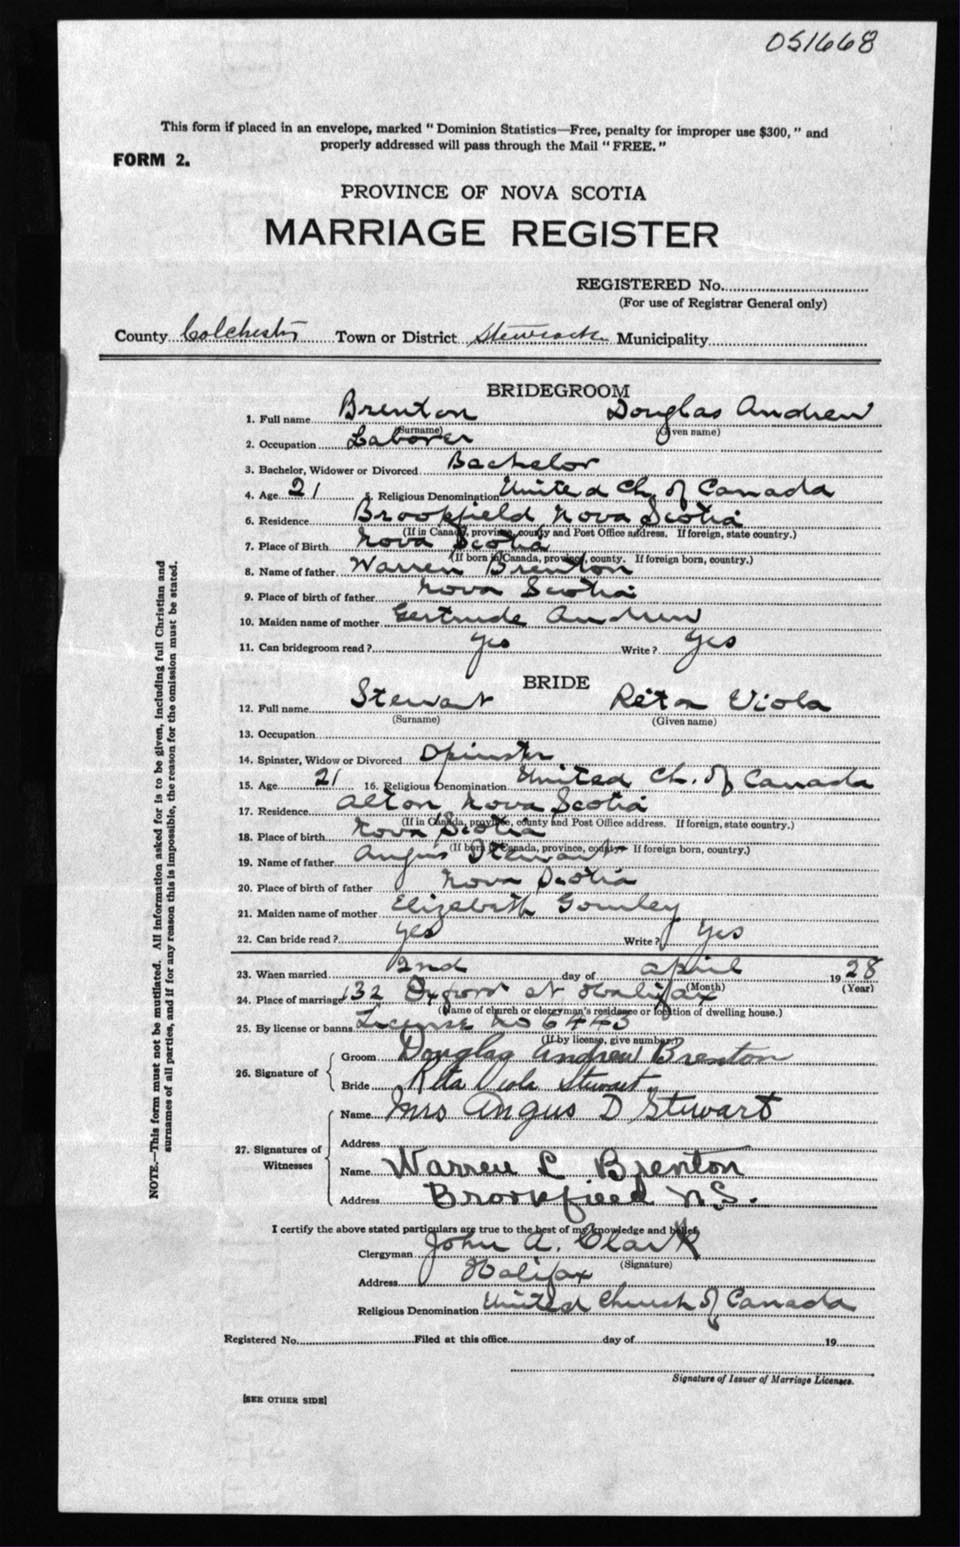 051668
This form if placed in an envelope, marked "Dominion Statistics—Free, penalty for improper use $300," and
properly addressed will pass through the Mail "FREE."
FORM 2.
PROVINCE OF NOVA SCOTIA
MARRIAGE REGISTER
REGISTERED No.
(For use of Registrar General only)
County Colchester Town or District Stewiacke Municipality
NOTE.—This form must not be mutilated. All information asked for is to be given, including full Christian and
surnames of all parties, and if for any reason this is impossible, the reason for the omission must be stated.
BRIDEGROOM
1. Full name Brenton Douglas Andrew
(Surname) (Given name)
2. Occupation Laborer
3. Bachelor, Widower or Divorced Bachelor
4. Age 21 5. Religious Denomination United Ch. of Canada
6. Residence Brookfield Nova Scotia
(If in Canada, province, county and Post Office address. If foreign, state country.)
7. Place of Birth Nova Scotia
(If born in Canada, province, county. If foreign born, country.)
8. Name of father Warren Brenton
9. Place of birth of father Nova Scotia
10. Maiden name of mother Gertrude Andrew
11. Can bridegroom read? Yes Write? Yes
BRIDE
12. Full name Stewart Reta Viola
(Surname) (Given name)
13. Occupation
14. Spinster, Widow or Divorced Spinster
15. Age 21 16. Religious Denomination United Ch. of Canada
17. Residence Alton Nova Scotia
(If in Canada, province, county and Post Office address. If foreign, state country.)
18. Place of birth Nova Scotia
(If born in Canada, province, county. If foreign born, country.)
19. Name of father Angus Stewart
20. Place of birth of father Nova Scotia
21. Maiden name of mother Elizabeth Gourley
22. Can bride read? Yes Write? Yes
23. When married 2nd day of April 1928
(Month) (Year)
24. Place of marriage 132 Oxford St Halifax
(Name of church or clergyman's residence or location of dwelling house.)
25. By license or banns License no 6443
(If by license, give number)
26. Signature of
Groom Douglas Andrew Brenton
Bride Reta Viola Stewart
27. Signatures of
Witnesses
Name Mrs Angus D Stewart
Address
Name Warren L Brenton
Address Brookfield N.S.
I certify the above stated particulars are true to the best of my knowledge and belief.
Clergyman John A. Clark
(Signature)
Address Halifax
Religious Denomination United Church of Canada
Registered No. Filed at this office day of 19
Signature of Issuer of Marriage Licenses.
[SEE OTHER SIDE]